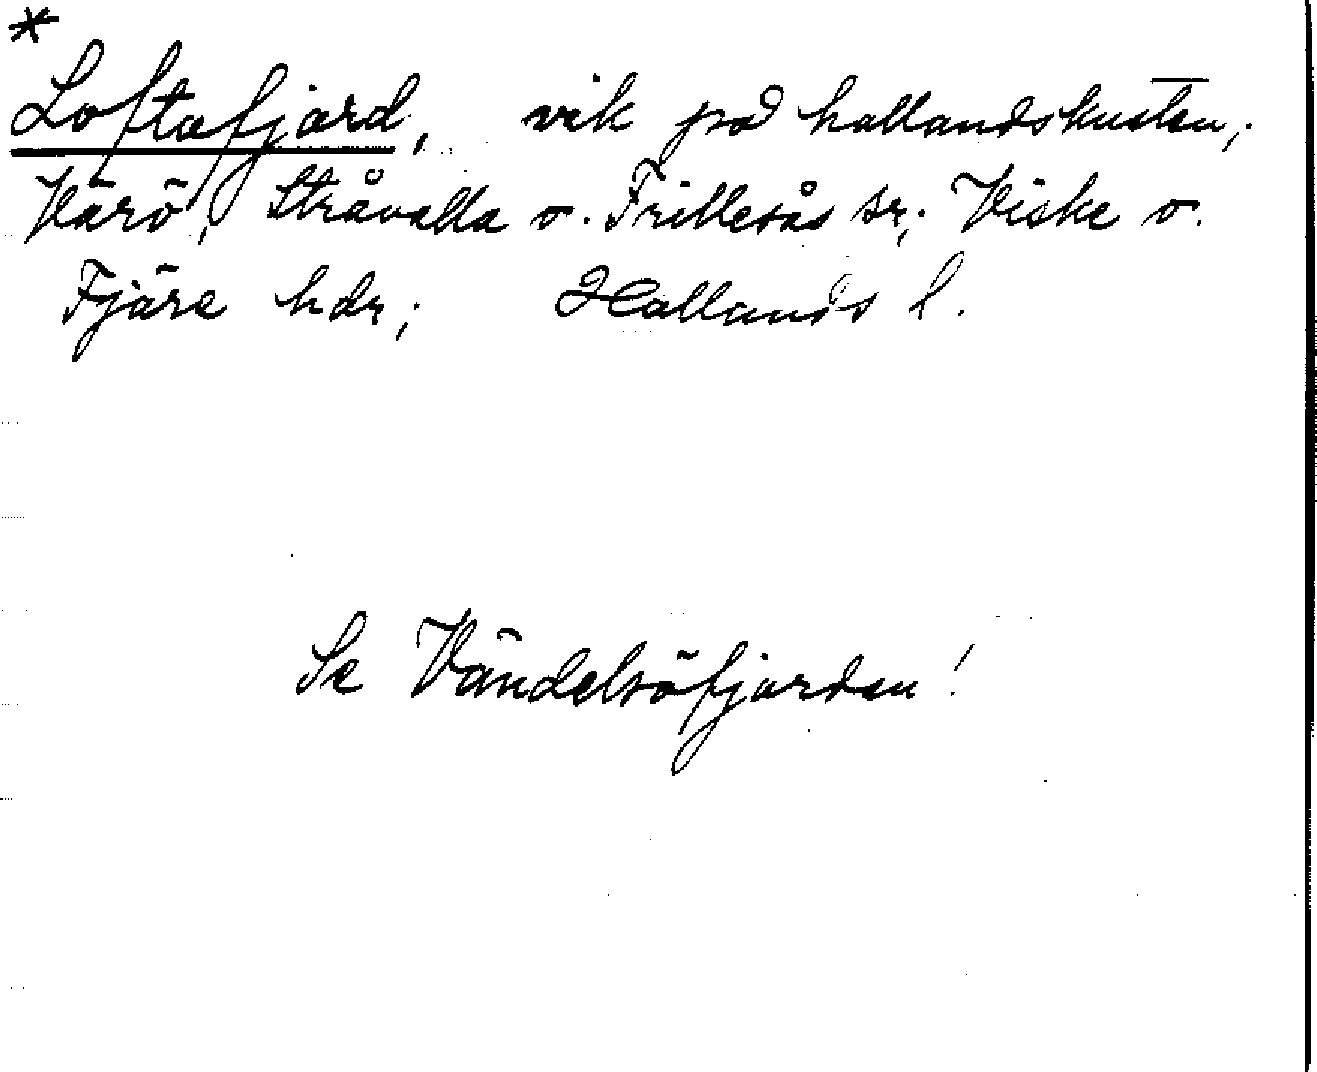 *
Loftafjärd, vik på hallandskusten,
Värö, Stråvalla o. Frillesås sr; Viske o.
Fjäre hdr; Hallands l.
Se Vändelsöfjorden!